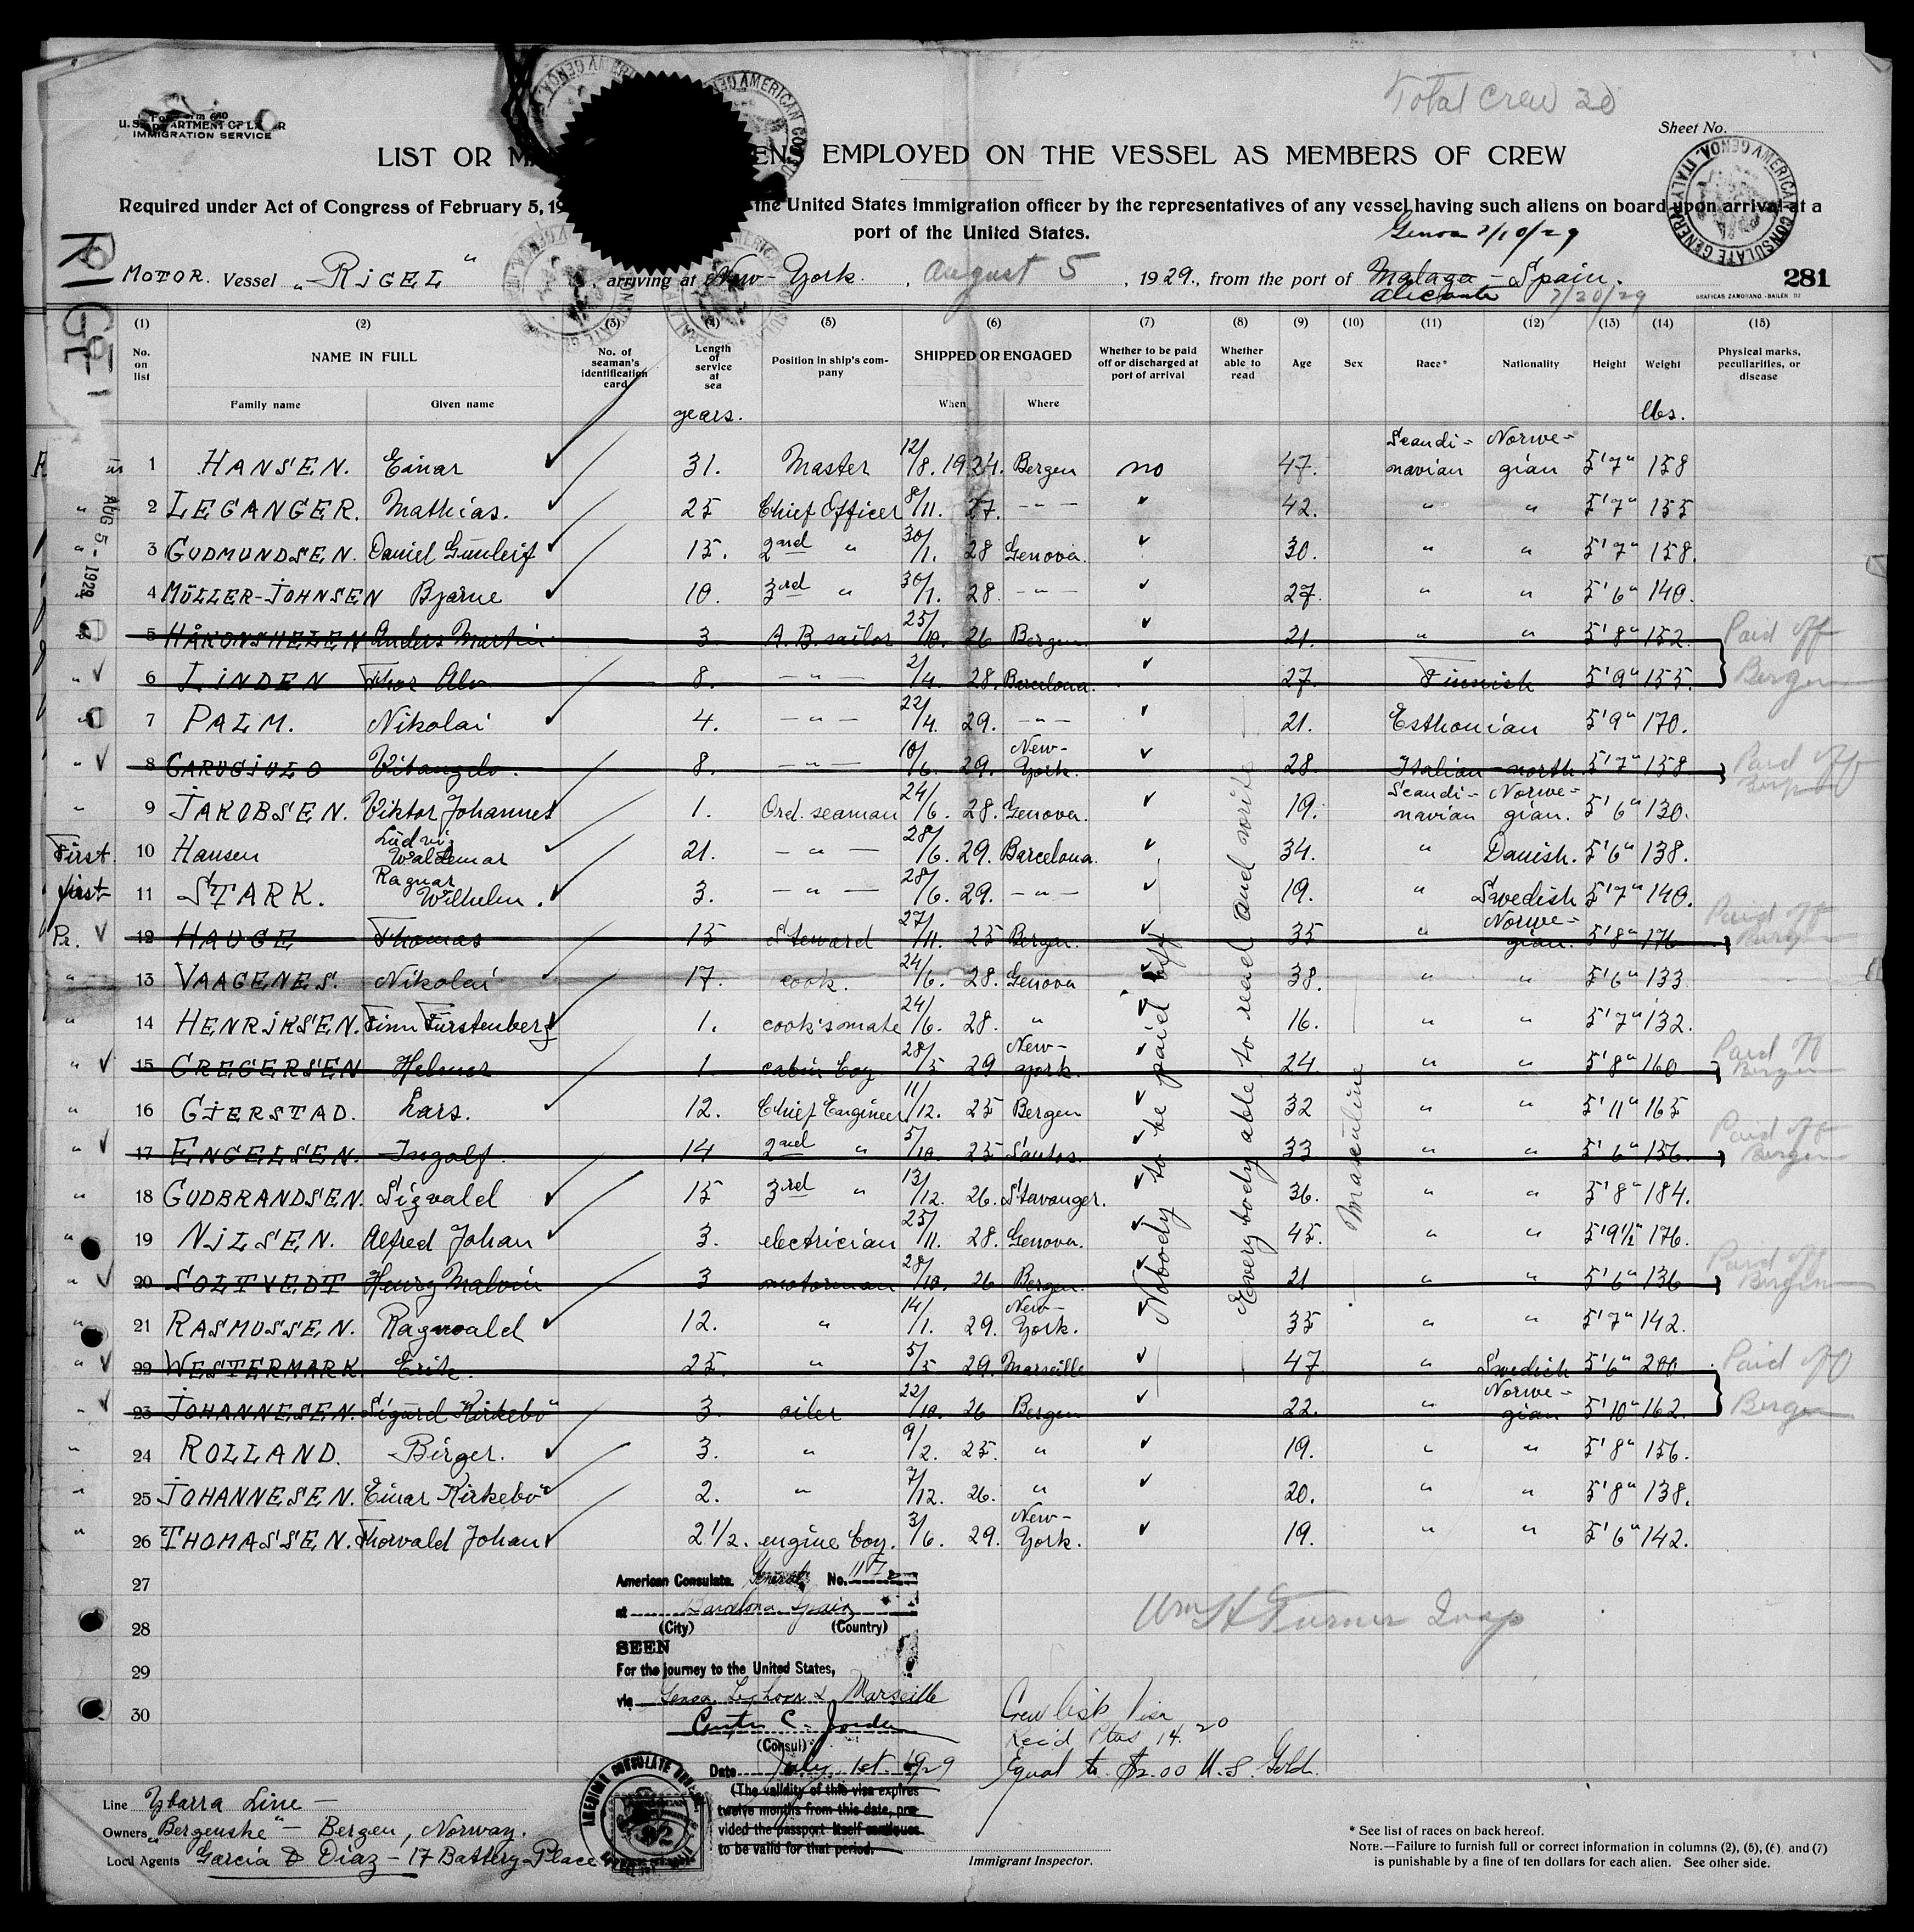 Total Crew 20
Form 680
U. S. DEPARTMENT OF LABOR
IMMIGRATION SERVICE
Sheet No.
LIST OR EMPLOYED ON THE VESSEL AS MEMBERS OF CREW
Required under Act of Congress of February 5, 19 the United States immigration officer by the representatives of any vessel having such aliens on board upon arrival at a
port of the United States.
Genoa 7/10/29
AMERICAN CONSULATE GENERAL GENOA, ITALY
RIGEL
MOTOR. Vessel „RiGEL“ , arriving at New-York. , August 5 , 1929., from the port of Malaga - Spain.
Alicante 7/20/29
281
GRAFICAS ZAMORANO.-BAILEN
(1) (2) (3) (4) (5) (6) (7) (8) (9) (10) (11) (12) (13) (14) (15)
No. on list
NAME IN FULL
Family name Given name
No. of seaman's identification card
Length of service at sea
years.
Position in ship's company
SHIPPED OR ENGAGED
When Where
Whether to be paid off or discharged at port of arrival
Whether able to read
Age
Sex
Race*
Nationality
Height
Weight
lbs.
Physical marks, peculiarities, or disease
AUG 5 - 1929
1 HANSEN. Einar 31. Master 12/8. 1924. Bergen no 47. Scandi-navian Norwe-gian 5'7" 158
" 2 LEGANGER. Mathias. 25 Chief Officer 8/11. 27. - " - 42. " " 5'7" 155
" 3 GUDMUNDSEN. Daniel Gunleif 15. 2nd " 30/1. 28 Genova. 30. " " 5'7" 158.
4 MÜLLER-JOHNSEN Bjarne 10. 3rd " 30/1. 28. - " - 27. " " 5'6" 140.
5 HÅKONSHELEN Anders Martin 3 A.B. sailor 25/10. 26 Bergen. 21. " " 5'8" 152. Paid off
" 6 LiNDEN Thor Alv 8. - " - 2/4. 28. Barcelona. 27. Finnish 5'9" 155. Bergen
7 PALM. Nikolai 4. - " - 22/4. 29. - " - 21. Esthonian 5'9" 170.
" 8 CARUGiULO Vitangelo. 8. - " - 10/6. 29. New-York. 28 Italian-north. 5'7" 158 Paid off Bergen
" 9 JAKOBSEN. Viktor Johannes 1. Ord. seaman 24/6. 28. Genova. 19. Scandi-navian Norwe-gian. 5'6" 130.
First. 10 Hansen Ludvig Waldemar 21. - " - 28/6. 29. Barcelona. 34. " Danish. 5'6" 138.
first 11 STARK. Ragnar Wilhelm. 3. - " - 28/6. 29. - " - 19. " Swedish 5'7" 140.
Pr. 12 HAUGE Thomas 15 Steward 27/11. 25 Bergen. 35 " Norwe-gian. 5'8" 176 Paid off Bergen
" 13 VAAGENES. Nikolai 17. cook. 24/6. 28. Genova 38. " " 5'6" 133
" 14 HENRiKSEN. Finn Fürstenberg 1. cook's mate 24/6. 28. " 16. " " 5'7" 132.
" 15 GREGERSEN Helmer 1 cabin boy 28/5 29 New-york. 24 " " 5'8" 160 Paid off Bergen
" 16 GJERSTAD. Lars. 12. Chief Engineer 11/12. 25 Bergen 32 " " 5'11" 165
" 17 ENGELSEN. Ingolf. 14 2nd " 5/10. 25 Santos. 33 " " 5'6" 156. Paid off Bergen
" 18 GUDBRANDSEN. Sigvald 15 3rd " 13/12. 26. Stavanger. 36. " " 5'8" 184.
" 19 NiLSEN. Alfred Johan 3. electrician 25/11. 28. Genova. 45. " " 5'9½" 176.
" 20 SOLTVEDT Henry Malvin 3 motorman 28/10. 26 Bergen. 21 " " 5'6" 136 Paid off Bergen
" 21 RASMUSSEN. Ragnvald 12. " 14/1. 29. New-York. 35 " " 5'7" 142.
" 22 WESTERMARK Erik. 25. " 5/5 29. Marseille 47 " Swedish 5'6" 200 Paid off
" 23 JOHANNESEN. Sigurd Kirkebö 3. oiler 22/10. 26 Bergen 22. " Norwe-gian 5'10" 162. Bergen
" 24 ROLLAND. Birger. 3. " 9/2. 25. " 19. " " 5'8" 156.
" 25 JOHANNESEN. Einar Kirkebö 2. " 7/12. 26. " 20. " " 5'8" 138.
" 26 THOMASSEN. Thorvald Johan 2½. engine boy. 3/6. 29. New-York. 19. " " 5'6" 142.
27
28
29
30
Nobody to be paid off
Everybody able to read and write
Masculine
American Consulate General, No. 1172
at Barcelona Spain
(City) (Country)
SEEN
For the journey to the United States,
via Genoa Leghorn & Marseille
(Consul)
Date July 1st 1929
(The validity of this visa expires
twelve months from this date, pro-
vided the passport itself continues
to be valid for that period.
Wm H Turner Insp
Crew list Visa
Rec'd Ptas 14.20
Equal to $2.00 U.S. Gold.
AMERICAN CONSULATE
Line Ybarra Line -
Owners „Bergenske“ - Bergen, Norway.
Local Agents Garcia & Diaz - 17 Battery Place
Immigrant Inspector.
* See list of races on back hereof.
NOTE.—Failure to furnish full or correct information in columns (2), (5), (6) and (7)
is punishable by a fine of ten dollars for each alien. See other side.